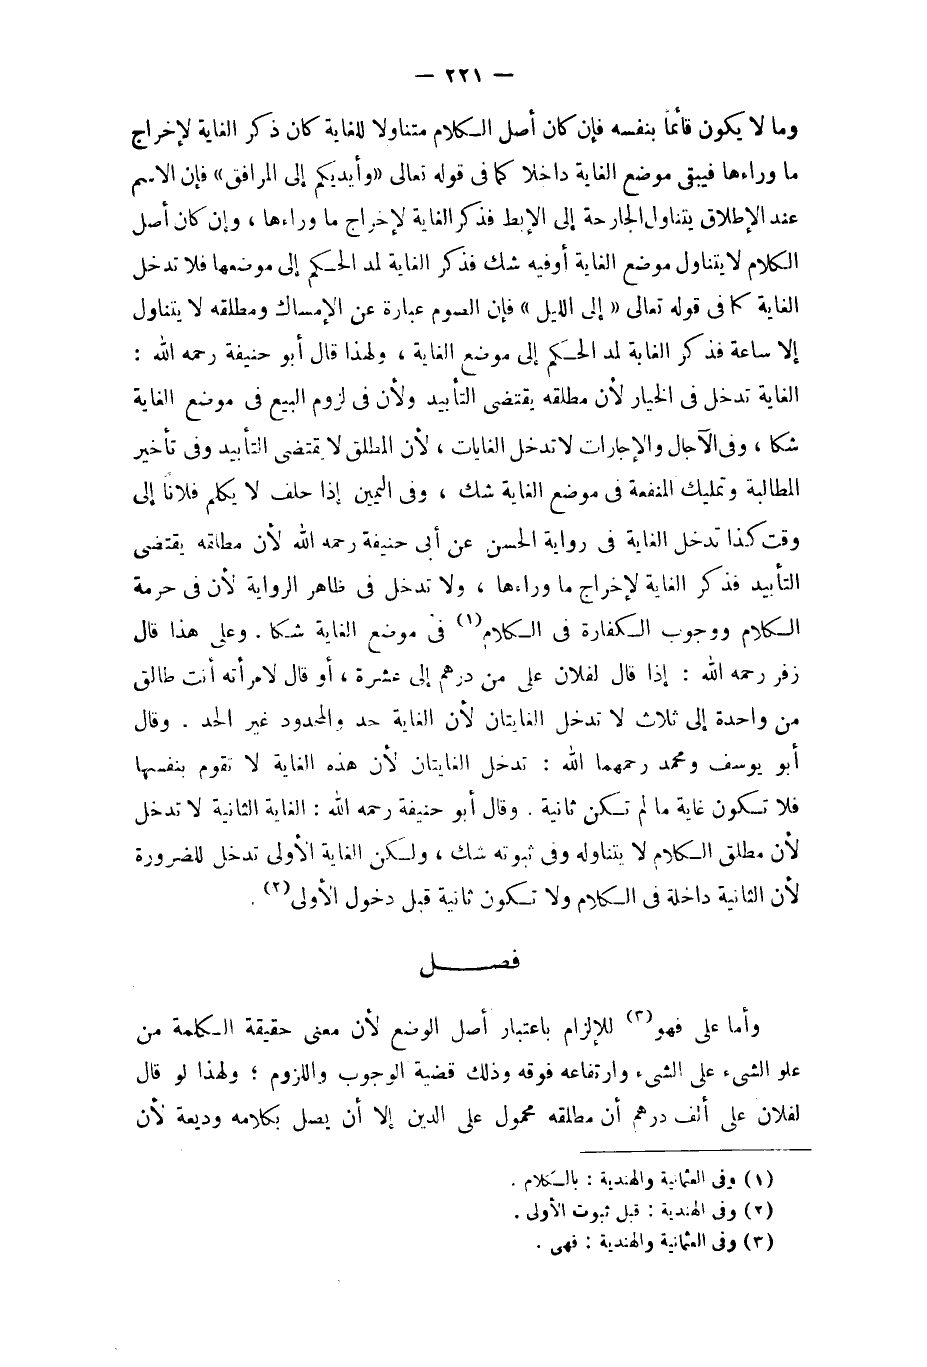 — ٢٢١ —
وما لا يكون قائماً بنفسه فإن كان أصل الكلام متناولا للغاية كان ذكر الغاية لإخراج
ما وراءها فيبقى موضع الغاية داخلا كما فى قوله تعالى «وأيديكم إلى المرافق» فإن الاسم
عند الإطلاق يتناول الجارحة إلى الإبط فذكر الغاية لإخراج ما وراءها ، وإن كان أصل
الكلام لا يتناول موضع الغاية أوفيه شك فذكر الغاية لمد الحكم إلى موضعها فلا تدخل
الغاية كما فى قوله تعالى « إلى الليل » فإن الصوم عبارة عن الإمساك ومطلقه لا يتناول
إلا ساعة فذكر الغاية لمد الحكم إلى موضع الغاية ، ولهذا قال أبو حنيفة رحمه الله :
الغاية تدخل فى الخيار لأن مطلقه يقتضى التأبيد ولأن فى لزوم البيع فى موضع الغاية
شكا ، وفى الآجال والإجارات لا تدخل الغايات ، لأن المطلق لا يقتضى التأبيد وفى تأخير
المطالبة وتمليك المنفعة فى موضع الغاية شك ، وفى اليمين إذا حلف لا يكلم فلاناً إلى
وقت كذا تدخل الغاية فى رواية الحسن عن أبى حنيفة رحمه الله لأن مطلقه يقتضى
التأبيد فذكر الغاية لإخراج ما وراءها ، ولا تدخل فى ظاهر الرواية لأن فى حرمة
الكلام ووجوب الكفارة فى الكلام(١) فى موضع الغاية شكا . وعلى هذا قال
زفر رحمه الله : إذا قال لفلان على من درهم إلى عشرة ، أو قال لامرأته أنت طالق
من واحدة إلى ثلاث لا تدخل الغايتان لأن الغاية حد والمحدود غير الحد . وقال
أبو يوسف ومحمد رحمهما الله : تدخل الغايتان لأن هذه الغاية لا تقوم بنفسها
فلا تكون غاية ما لم تكن ثانية . وقال أبو حنيفة رحمه الله : الغاية الثانية لا تدخل
لأن مطلق الكلام لا يتناوله وفى ثبوته شك ، ولكن الغاية الأولى تدخل للضرورة
لأن الثانية داخلة فى الكلام ولا تكون ثانية قبل دخول الأولى(٢) .
فصل
وأما على فهو(٣) للإلزام باعتبار أصل الوضع لأن معنى حقيقة الكلمة من
علو الشىء على الشىء وارتفاعه فوقه وذلك قضية الوجوب واللزوم ؛ ولهذا لو قال
لفلان على ألف درهم أن مطلقه محمول على الدين إلا أن يصل بكلامه وديعة لأن
(١) وفى العثمانية والهندية : بالكلام .
(٢) وفى الهندية : قبل ثبوت الأولى .
(٣) وفى العثمانية والهندية : فهى .